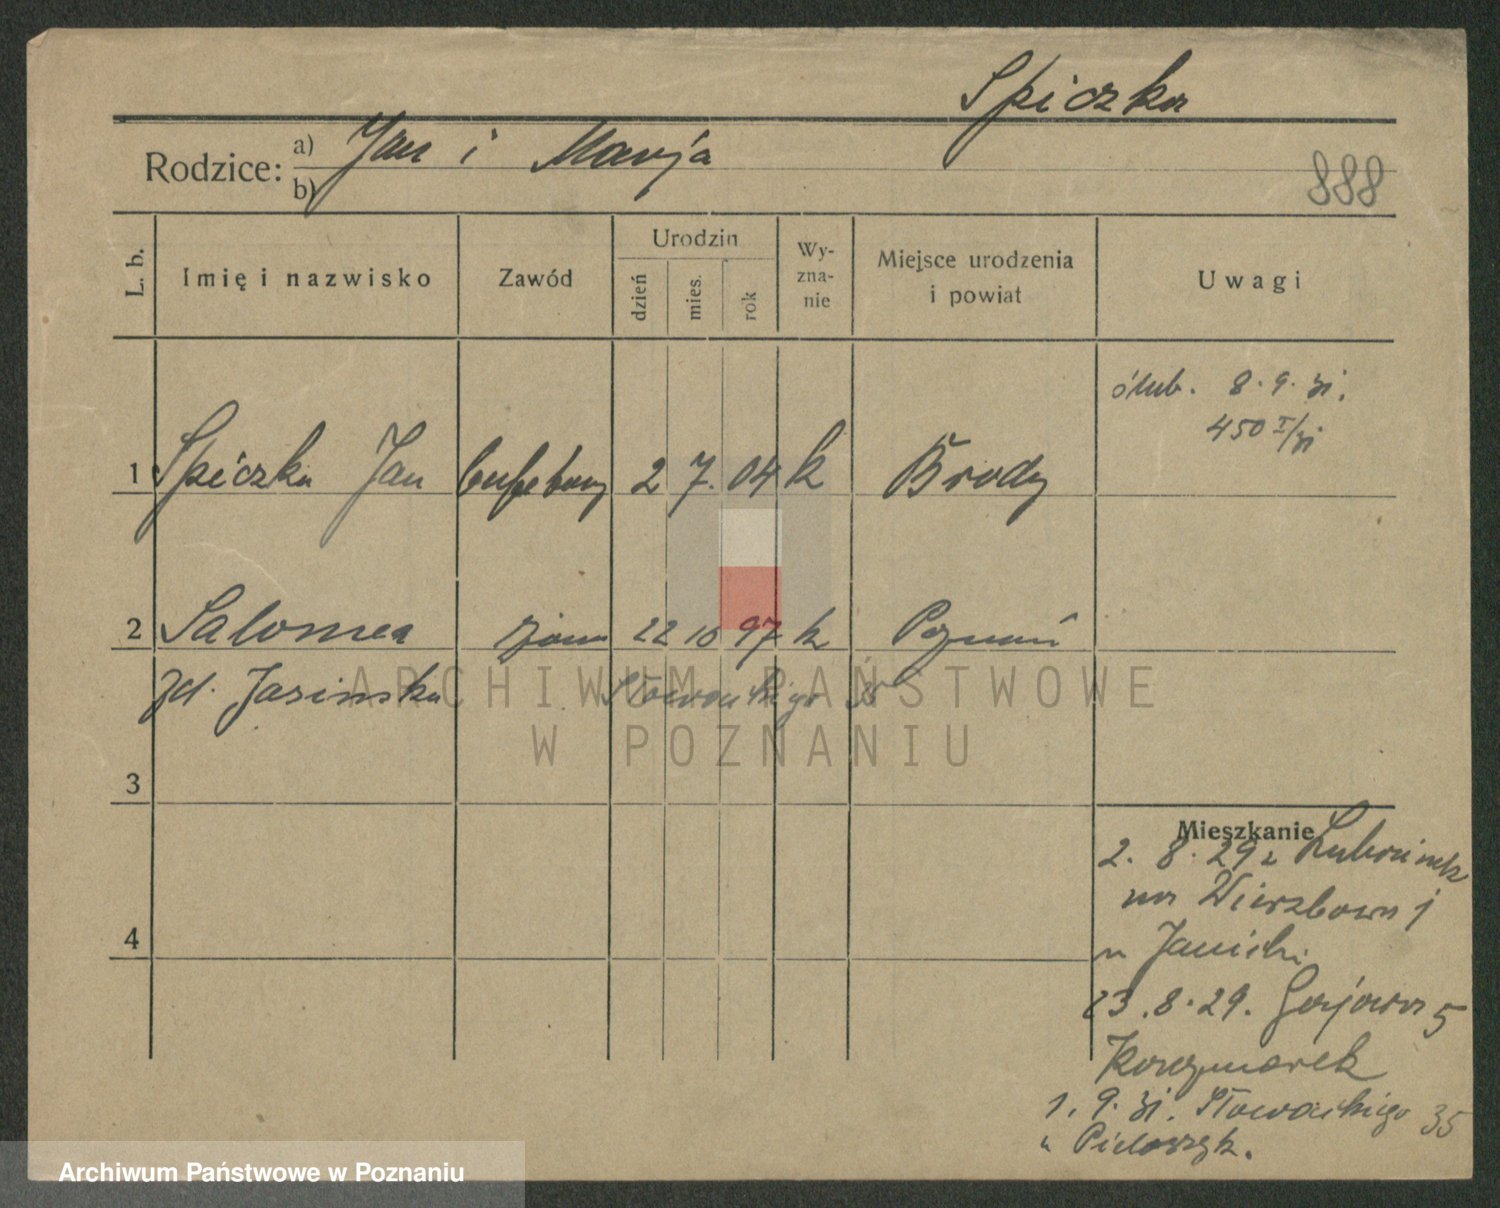 Spiczka
Rodzice: a) Jan i Marja
b)
888
L. b.
Imię i nazwisko
Zawód
Urodzin
dzień
mies.
rok
Wy-
zna-
nie
Miejsce urodzenia
i powiat
Uwagi
ślub. 8.9.31.
450 I/31
1 Spiczka Jan bufetowy 2 7. 04 k Brody
2 Salomea żona 22 10 97 k Poznań
zd. Jasinska Słowackiego
ARCHIWUM PAŃSTWOWE
W POZNANIU
3
4
Mieszkanie
2. 8. 29 z
na Wierzbowa 1
u Janicki
23. 8. 29. Gajowa 5
Kaczmarek
1. 9. 31. Słowackiego 35
u
Archiwum Państwowe w Poznaniu